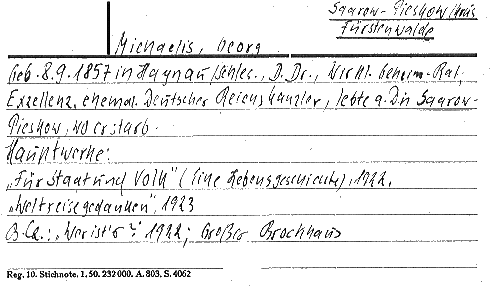 Saarow-Pieskow/Kreis
Fürstenwalde
Michaelis, Georg
Geb. 8.9.1857 in Haynau/Schles., D. Dr., Wirkl. Geheim. Rat,
Exzellenz, ehemal. Deutscher Reichskanzler, lebte a.D. in Saarow-
Pieskow, wo er starb.
Hauptwerke:
„Für Staat und Volk" (Eine Lebensgeschichte), 1922,
„Weltreisegedanken", 1923
: „Wer ist's?" 1922; Großer Brockhaus
Reg. 10. Stichnote. 1. 50. 232 000. A. 803. S. 4062